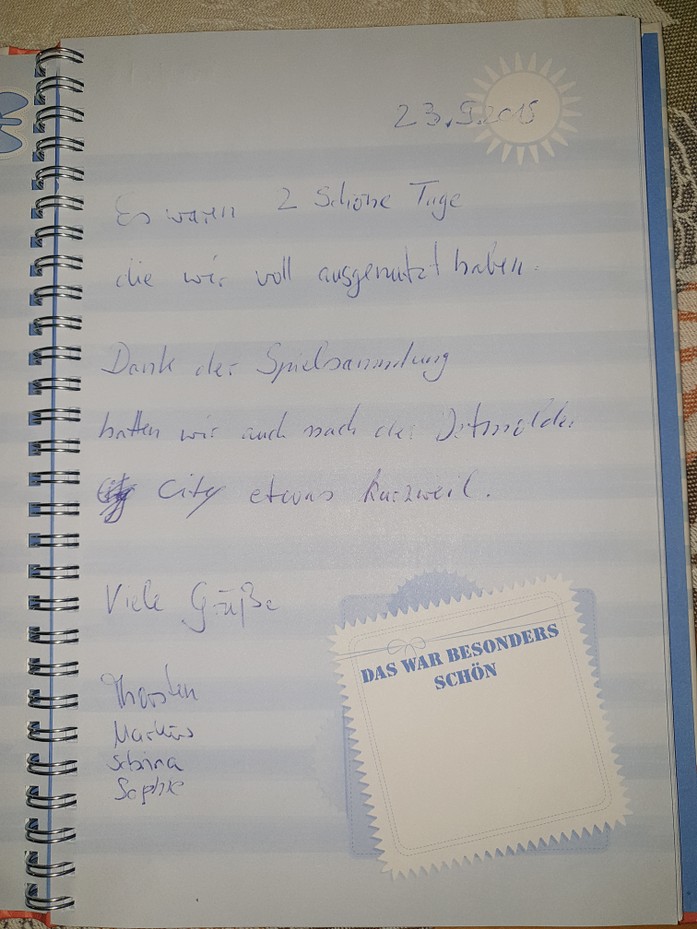 23.5.2015
Es waren 2 schöne Tage
die wir voll ausgenutzt haben.
Dank der Spielsammlung
hatten wir auch nach der Detmolder
City etwas Kurzweil.
Viele Grüße
Thorsten
Markus
Sabrina
Sophie
DAS WAR BESONDERS
SCHÖN